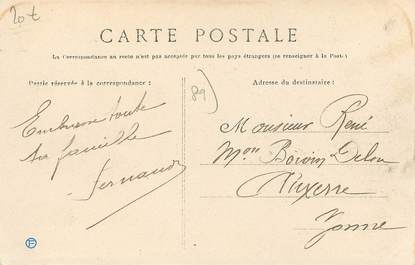 20€
CARTE POSTALE
La Correspondance au recto n'est pas acceptée par tous les pays étrangers (se renseigner à la Poste.)
Partie réservée à la correspondance :
Adresse du destinataire :
89)
Embrasse toute
ta famille
Fernand
Monsieur René
Mon Boivin
Auxerre
Yonne